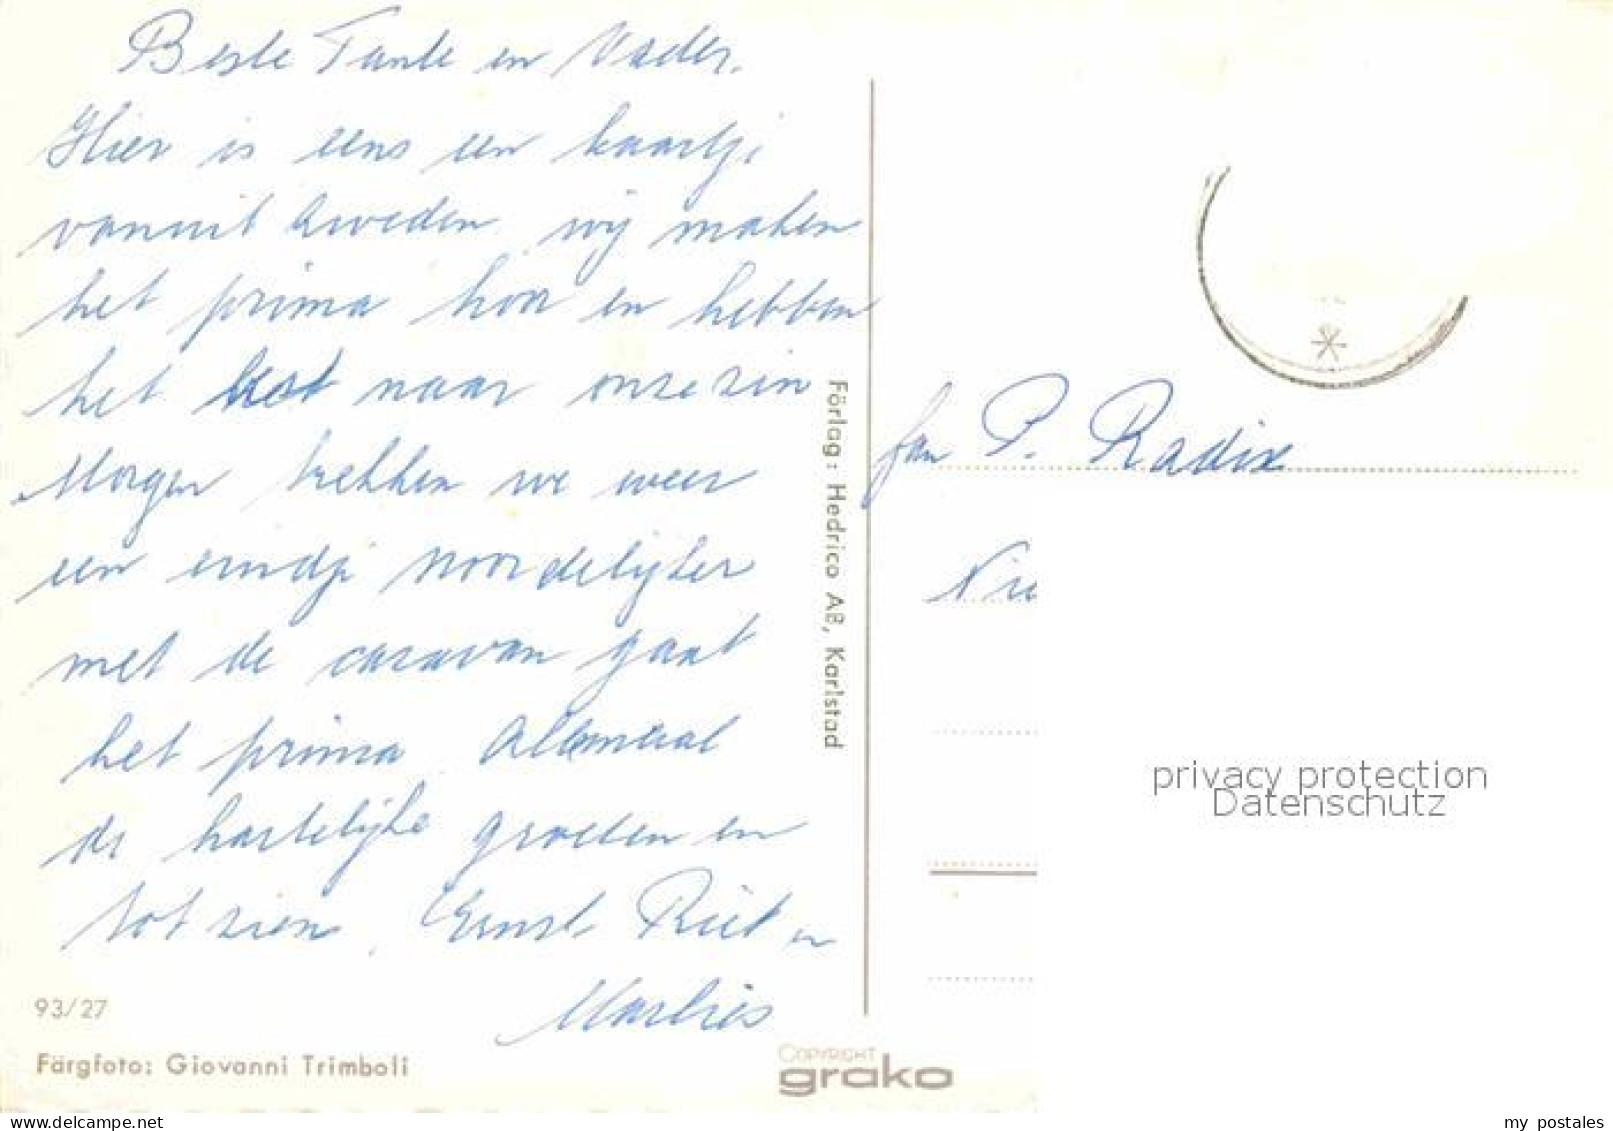 Beste Tante en Vader.
Hier is eens een kaartji
vanuit Zweden wij maken
het prima hoor en hebben
het best naar onze zin
Morgen trekken we weer
een eindji noordelijker
met de caravan gaat
het prima Allemaal
de hartelijke groeten en
tot ziens. Ernst Riet en
Marlies
93/27
Färgfoto: Giovanni Trimboli
Förlag: Hedrico AB, Karlstad
COPYRIGHT
grako
fam P. Radix
privacy protection
Datenschutz
delcampe.net
my_postales